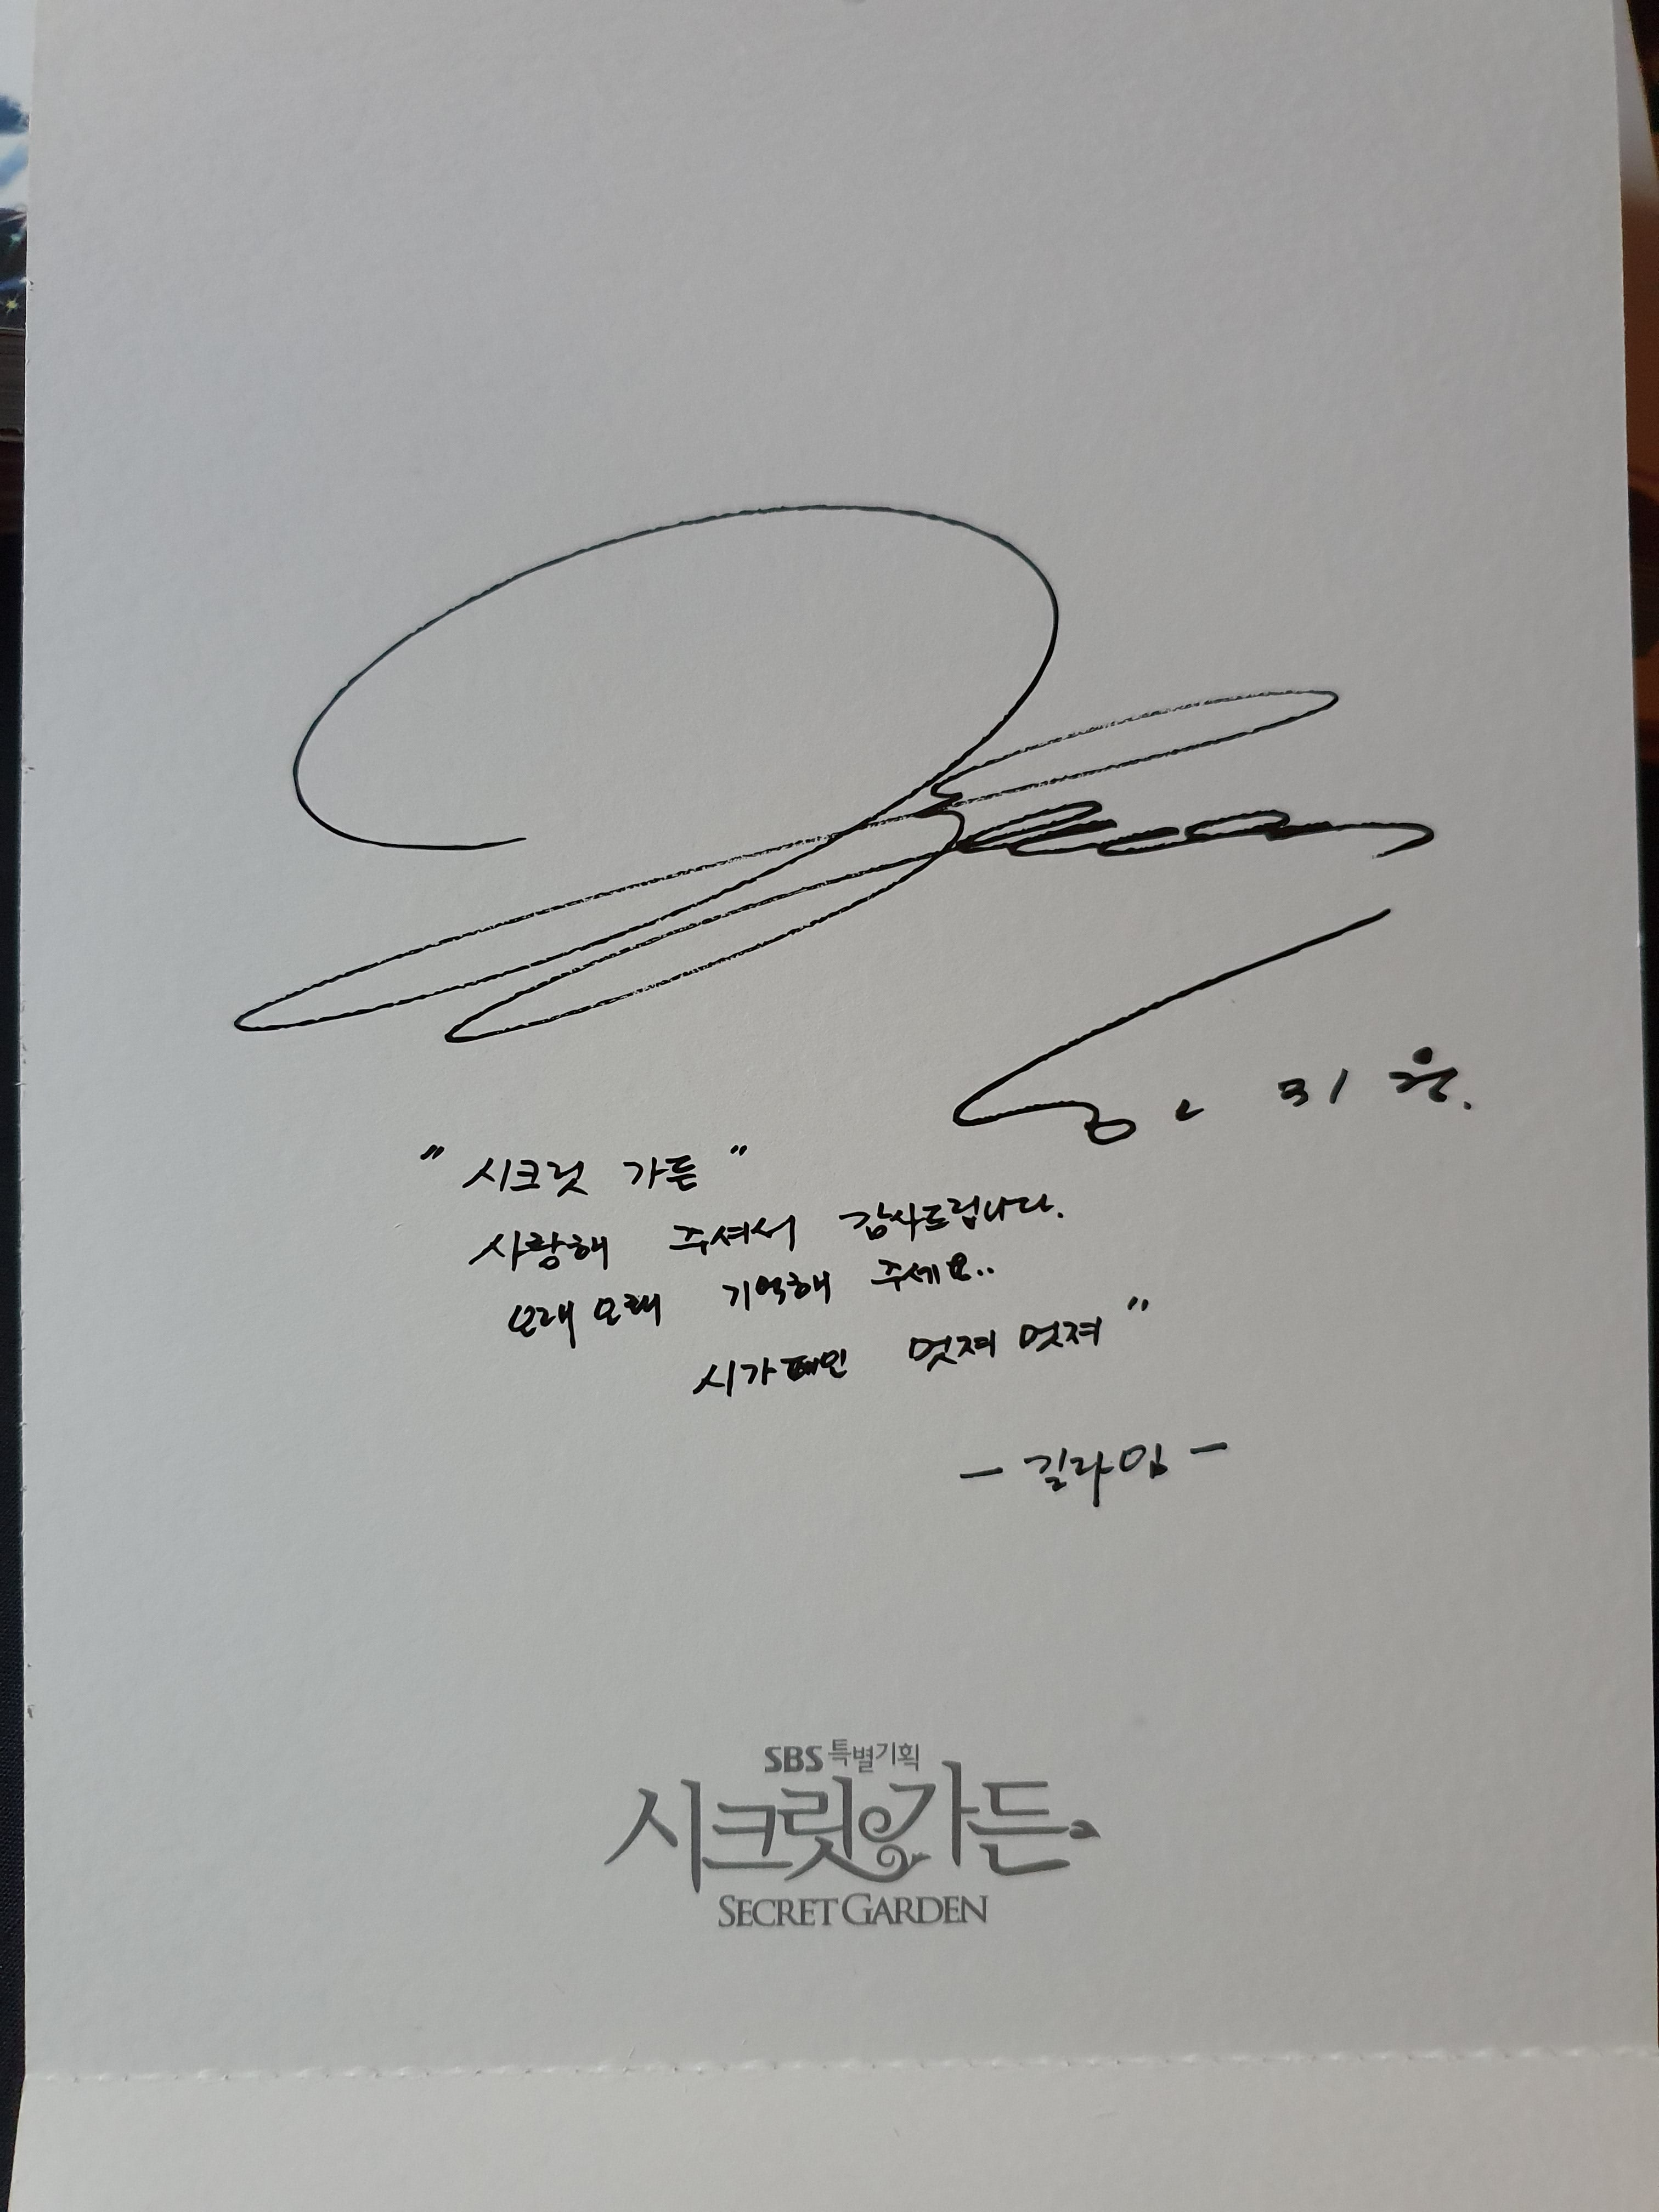 하지원.
" 시크릿 가든 "
사랑해 주셔서 감사드립니다.
오래오래 기억해 주세요..
시가폐인 멋져 멋져 "
- 길라임 -
SBS 특별기획
시크릿 가든
SECRET GARDEN